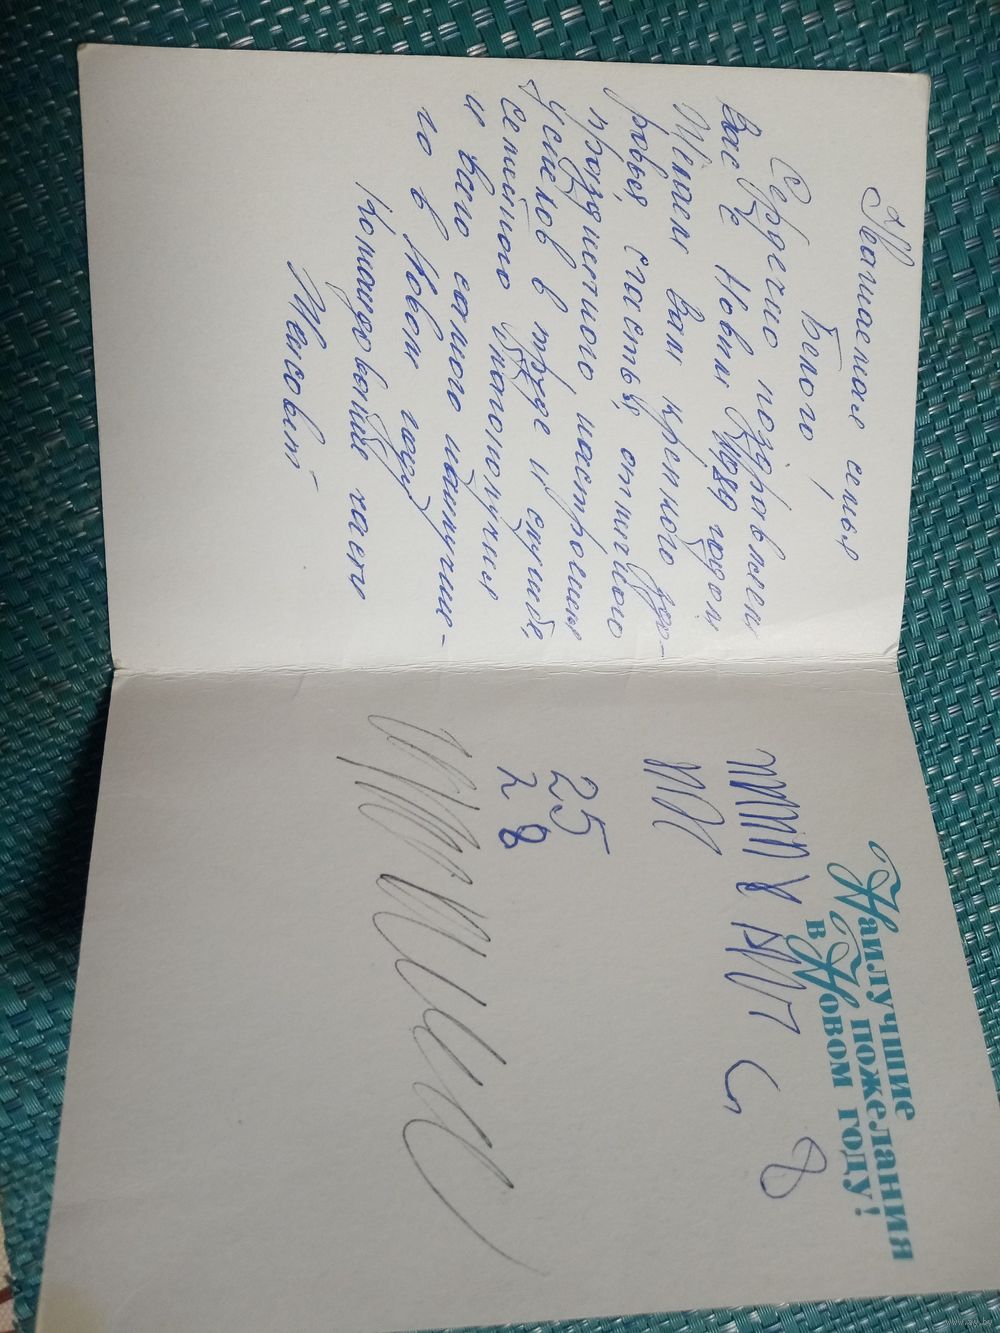 Уважаемая семья
Белого,
Сердечно поздравляем
Вас с Новым 1989 годом
Желаем вам крепкого здо-
ровья, счастья, отличного
праздничного настроения
успехов в труде и службе,
семейного благополучия
и всего самого наилучше-
го в Новом году
Командование части
Наилучшие
пожелания
в Новом году!
25
28